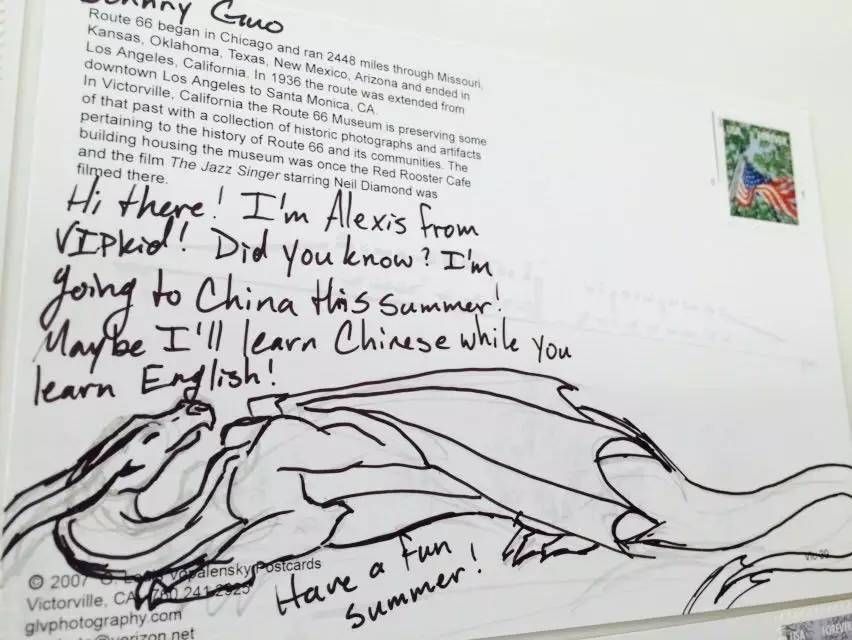 Guo
Route 66 began in Chicago and ran 2448 miles through Missouri,
Kansas, Oklahoma, Texas, New Mexico, Arizona and ended in
Los Angeles, California. In 1936 the route was extended from
downtown Los Angeles to Santa Monica, CA.
In Victorville, California the Route 66 Museum is preserving some
of that past with a collection of historic photographs and artifacts
pertaining to the history of Route 66 and its communities. The
building housing the museum was once the Red Rooster Cafe
and the film The Jazz Singer starring Neil Diamond was
filmed there.
Hi there! I'm Alexis from
VIPkid! Did you know? I'm
going to China this summer!
Maybe I'll learn Chinese while you
learn English!
Have a fun
summer!
© 2007 Vopalensky Postcards
Victorville, CA 760 241-2925
glvphotography.com
USA FOREVER